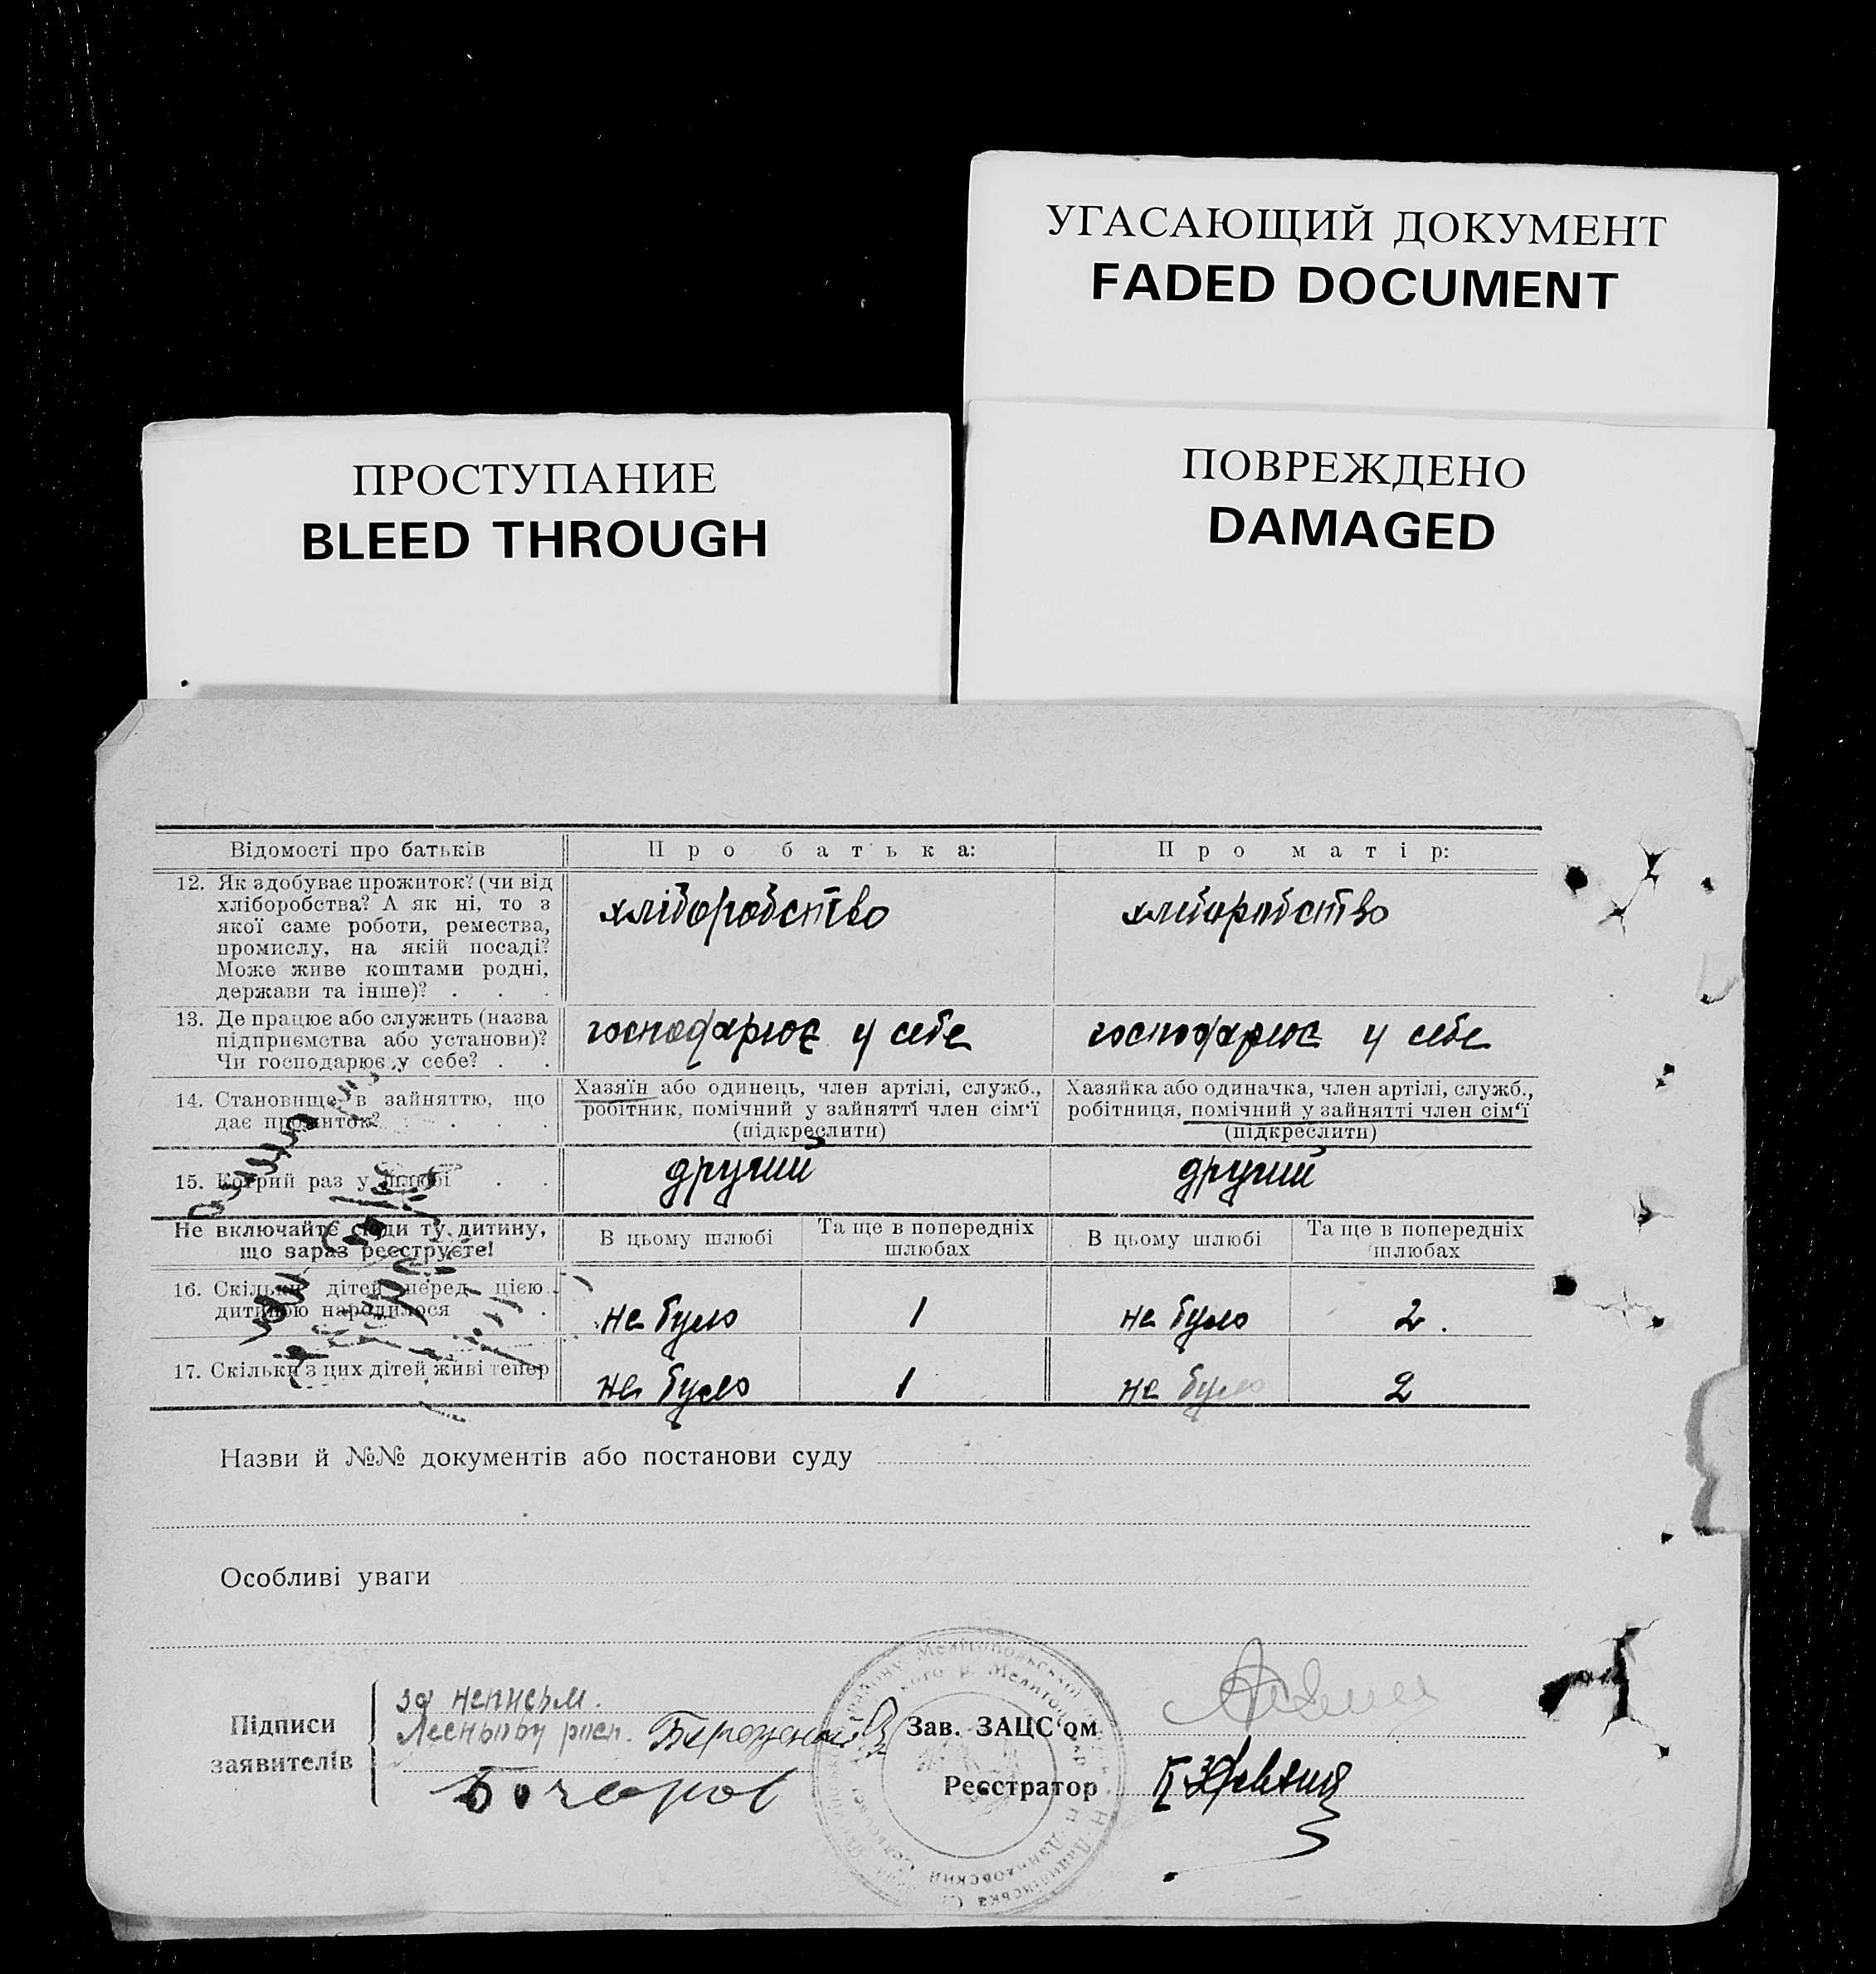 УГАСАЮЩИЙ ДОКУМЕНТ
FADED DOCUMENT
ПРОСТУПАНИЕ
BLEED THROUGH
ПОВРЕЖДЕНО
DAMAGED
Відомості про батьків
Про батька:
Про матір:
12. Як здобуває прожиток? (чи від
хліборобства? А як ні, то з
якої саме роботи, ремества,
промислу, на якій посаді?
Може живе коштами родні,
держави та інше)? . . .
хліборобство
хліборобство
13. Де працює або служить (назва
підприємства або установи)?
Чи господарює у себе? . .
господарює у себе
господарює у себе
14. Становище в зайняттю, що
дає прожиток? . . .
Хазяїн або одинець, член артілі, служб.,
робітник, помічний у зайнятті член сім'ї
(підкреслити)
Хазяйка або одиначка, член артілі, служб.,
робітниця, помічний у зайнятті член сім'ї
(підкреслити)
15. Котрий раз у шлюбі . .
другий
другий
Не включайте сюди ту дитину,
що зараз реєструєте!
В цьому шлюбі
Та ще в попередніх
шлюбах
В цьому шлюбі
Та ще в попередніх
шлюбах
16. Скільки дітей перед цією
дитиною народилося .
не було
1
не було
2.
17. Скільки з цих дітей живі тепер
не було
1
не було
2
Назви й №№ документів або постанови суду
Особливі уваги
Підписи
заявителів
за неписьм.
Бочаров
Зав. ЗАЦС'ом
Реєстратор